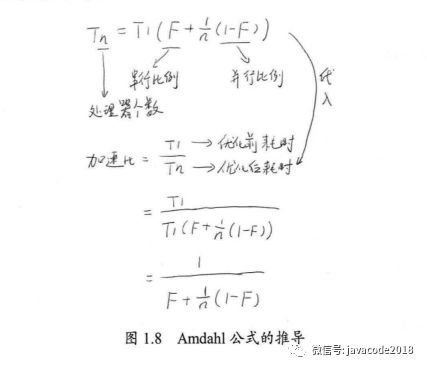 Tn = T1(F + 1/n(1-F))
串行比例
并行比例
代入
处理器个数
加速比 = T1/Tn
→优化前耗时
→优化后耗时
= T1/(T1(F + 1/n(1-F)))
= 1/(F + 1/n(1-F))
图 1.8 Amdahl 公式的推导
微信号: javacode2018